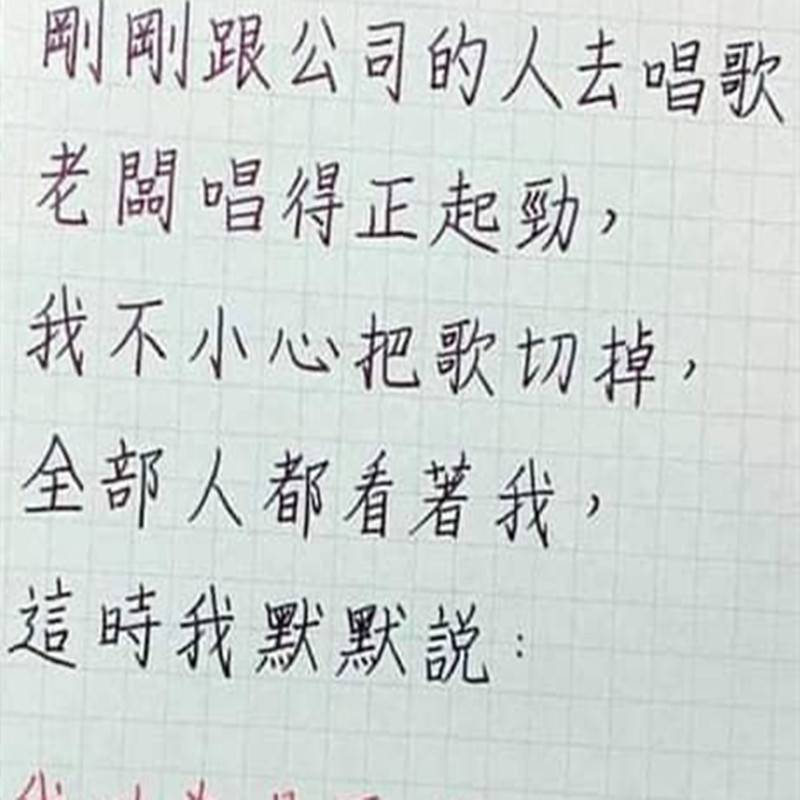 剛剛跟公司的人去唱歌
老闆唱得正起勁，
我不小心把歌切掉，
全部人都看著我，
這時我默默說：